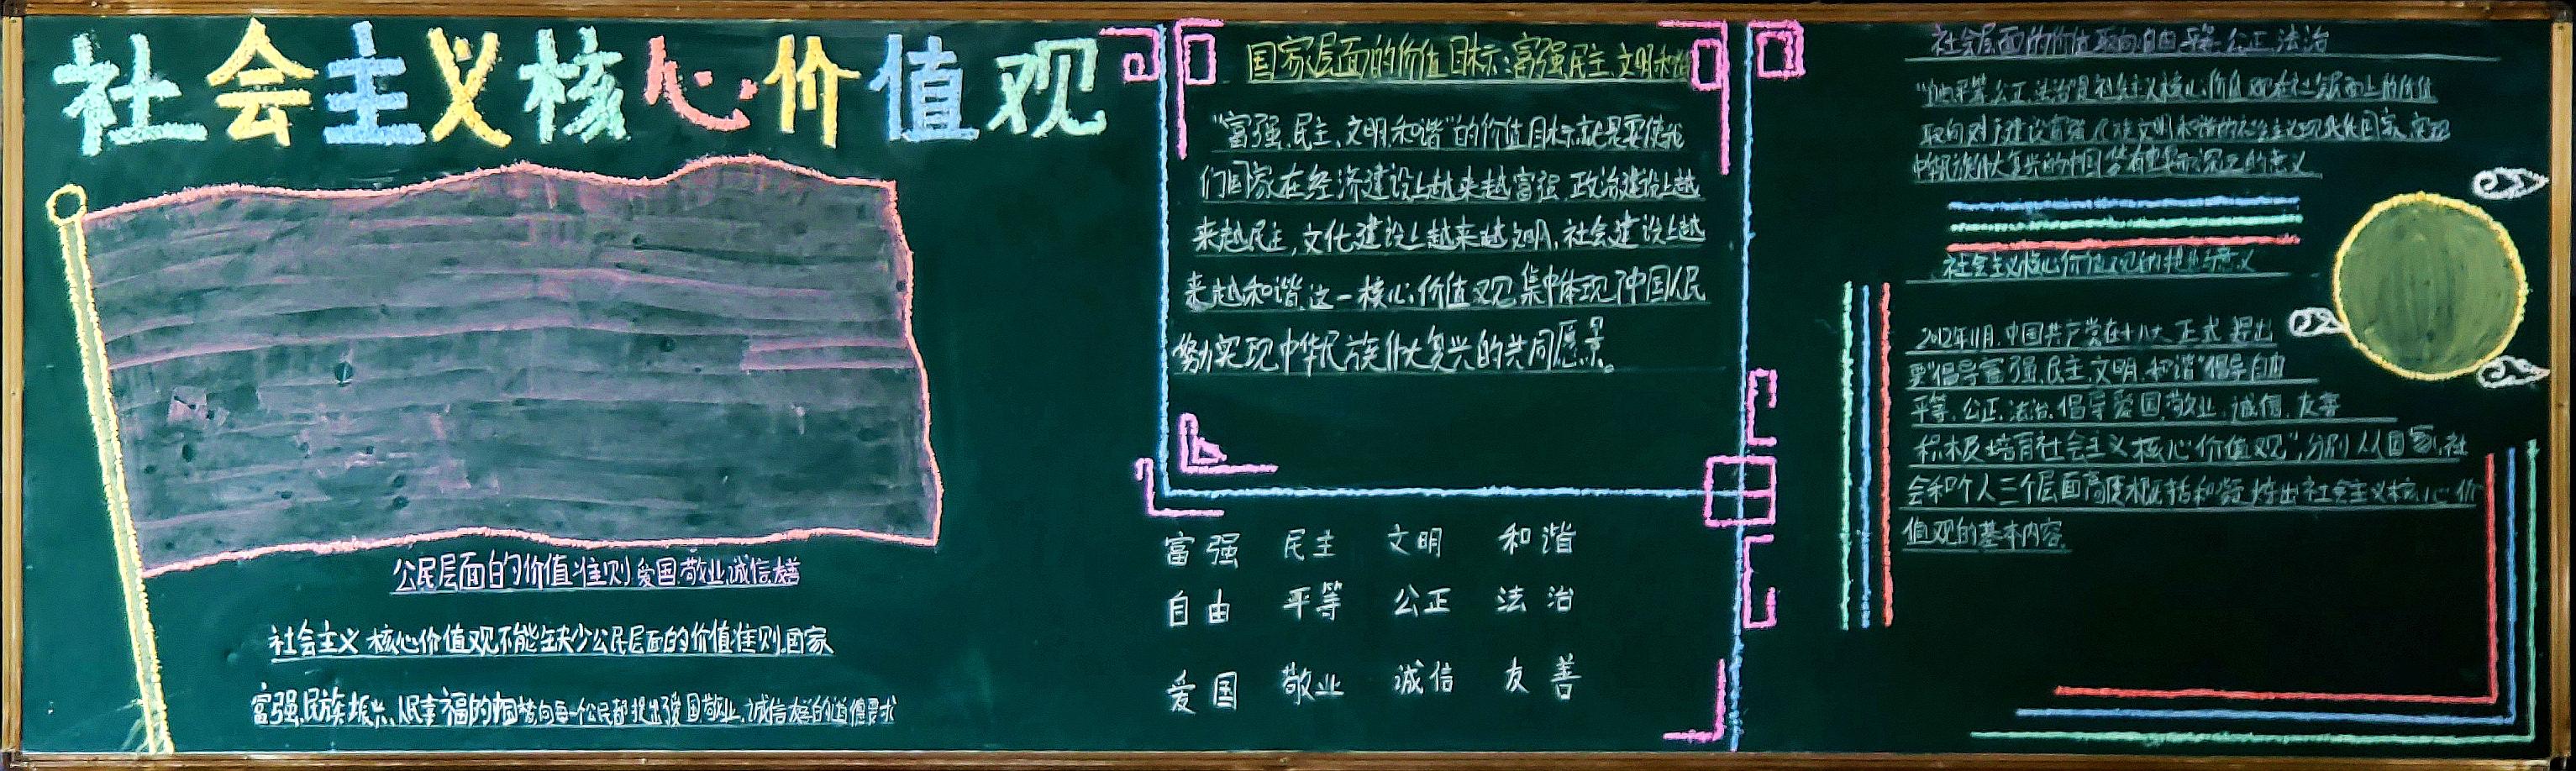 社会主义核心价值观
公民层面的价值准则爱国.敬业.诚信.友善
社会主义核心价值观不能缺少公民层面的价值准则.国家
富强,民族振兴、人民幸福的中国梦向每一个公民都提出了爱国敬业、诚信友善的道德要求
国家层面的价值目标:富强民主、文明和谐
“富强、民主、文明、和谐”的价值目标就是要使我
们国家在经济建设上越来越富强,政治建设上越
来越民主,文化建设上越来越文明,社会建设上越
来越和谐,这一核心价值观集中体现了中国人民
努力实现中华民族伟大复兴的共同愿景。
富强 民主 文明 和谐
自由 平等 公正 法治
爱国 敬业 诚信 友善
社会层面的价值取向:自由 平等 公正 法治
“自由平等公正法治”是社会主义核心价值观在社会层面上的价值
取向对于建设富强民主文明和谐的社会主义现代化国家,实现
中华民族伟大复兴的中国梦有重要而深远的意义
社会主义核心价值观的提出与意义
2012年11月,中国共产党在十八大正式提出
要“倡导富强、民主、文明、和谐”倡导自由
平等、公正、法治、倡导爱国、敬业、诚信、友善
积极培育社会主义核心价值观”,分别从国家、社
会和个人三个层面高度概括和凝炼出社会主义核心价
值观的基本内容